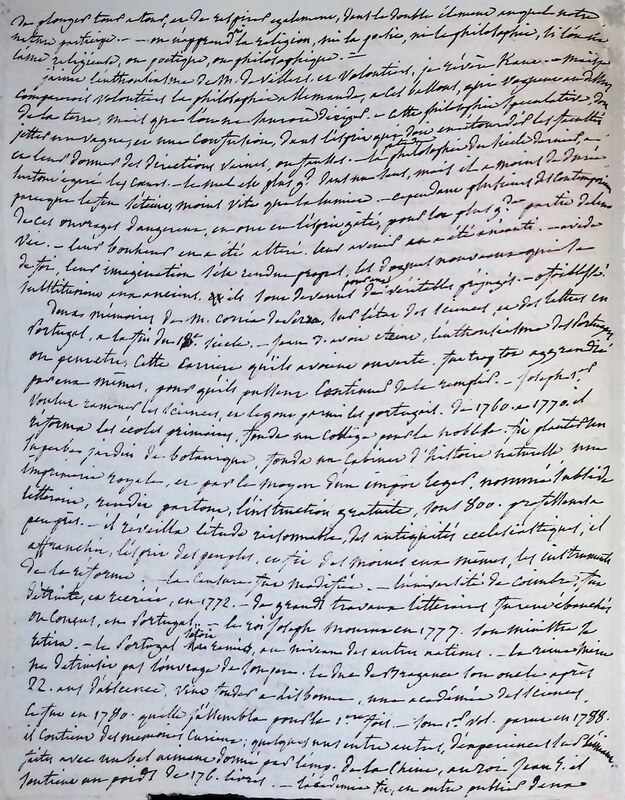 de plonger tour a tour, et de respirer également, dans le double élément auquel notre
nature participe. — on n'apprend ni la religion, ni la poésie, ni la philosophie, si l'on n'a
l'âme religieuse, ou poétique, ou philosophique. —
j'aime l'enthousiasme de M. de Villers, et volontiers, je révère Kant. — mais je
comparerois volontiers la philosophie allemande, a ces ballons, qui voguent au dessus
de la terre, mais que l'on ne sauroit diriger. — cette philosophie spéculative, doit
jetter un vague, et une confusion, dans l'esprit
et leur donner des directions vaines, ou fausses. — la philosophie du siècle dernier, a
surtout égaré les cœurs. — le mal est plus gd dans un sens, mais il a moins de durée
parce que le feu s'éteint, moins vite que la lumière. — cependant plusieurs des contemporains
de ces ouvrages dangereux, en ont eu l'esprit gâté, pour la plus gde partie de leur
vie. — leur bonheur en a été altéré. leur avenir en a été anéanti. — avide
de foi, leur imagination s'est rendue propres, les dogmes nouveaux qui se
substituoient aux anciens. et ils sont devenus pour eux de véritables préjugés. —
Deux mémoires de M. corréa de Serra, sur l'état des sciences, et des lettres en
Portugal, a la fin du 18e siecle. — Jean 3. avoit éteint, l'enthousiasme des Portugais
on peut être, cette carrière qu'ils avoient ouverte, fut trop tot aggrandie
par eux mêmes, pour qu'ils pussent continuer de la remplir. — Joseph 1er
voulut ramener les sciences, et le gout parmi les portugais. de 1760. a 1770. il
réforma les ecoles primaires, fonda un collège pour la noblesse. fit planter un
superbe jardin de botanique, fonda un cabinet d'histoire naturelle une
imprimerie royale, et par le moyen d'un impot leger, nommé subside
litteraire, rendit partout, l'instruction gratuite, sous 800. professeurs
payés. — il reveilla l'étude raisonnable, des antiquités ecclésiastiques, il
affranchit, l'esprit des peuples, et fit des moines eux mêmes, les instruments
de la réforme. — la censure fut modifiée. — l'université de coimbre, fut
détruite, et recréée, en 1772. — de grands travaux litteraires furent ébauchés
ou conçus, en Portugal. — le roi Joseph mourut en 1777. son ministre se
retira. — le Portugal s'étoit remis, au niveau des autres nations. — la reine Marie
ne détruisit pas l'ouvrage de son père. le duc de Bragance son oncle, après
22. ans d'absence, vint fonder a Lisbonne, une académie des sciences.
ce fut en 1780. qu'elle s'assembla pour la 1ere fois. — son 1er vol. parut en 1788.
il contient des mémoires curieux; quelques uns entre autres, d'expériences
faites avec un bel aimant donné par l'emp. de la Chine, au roi Jean 5. et
soutient un poids de 176. livres. — l'académie fit, en outre publier